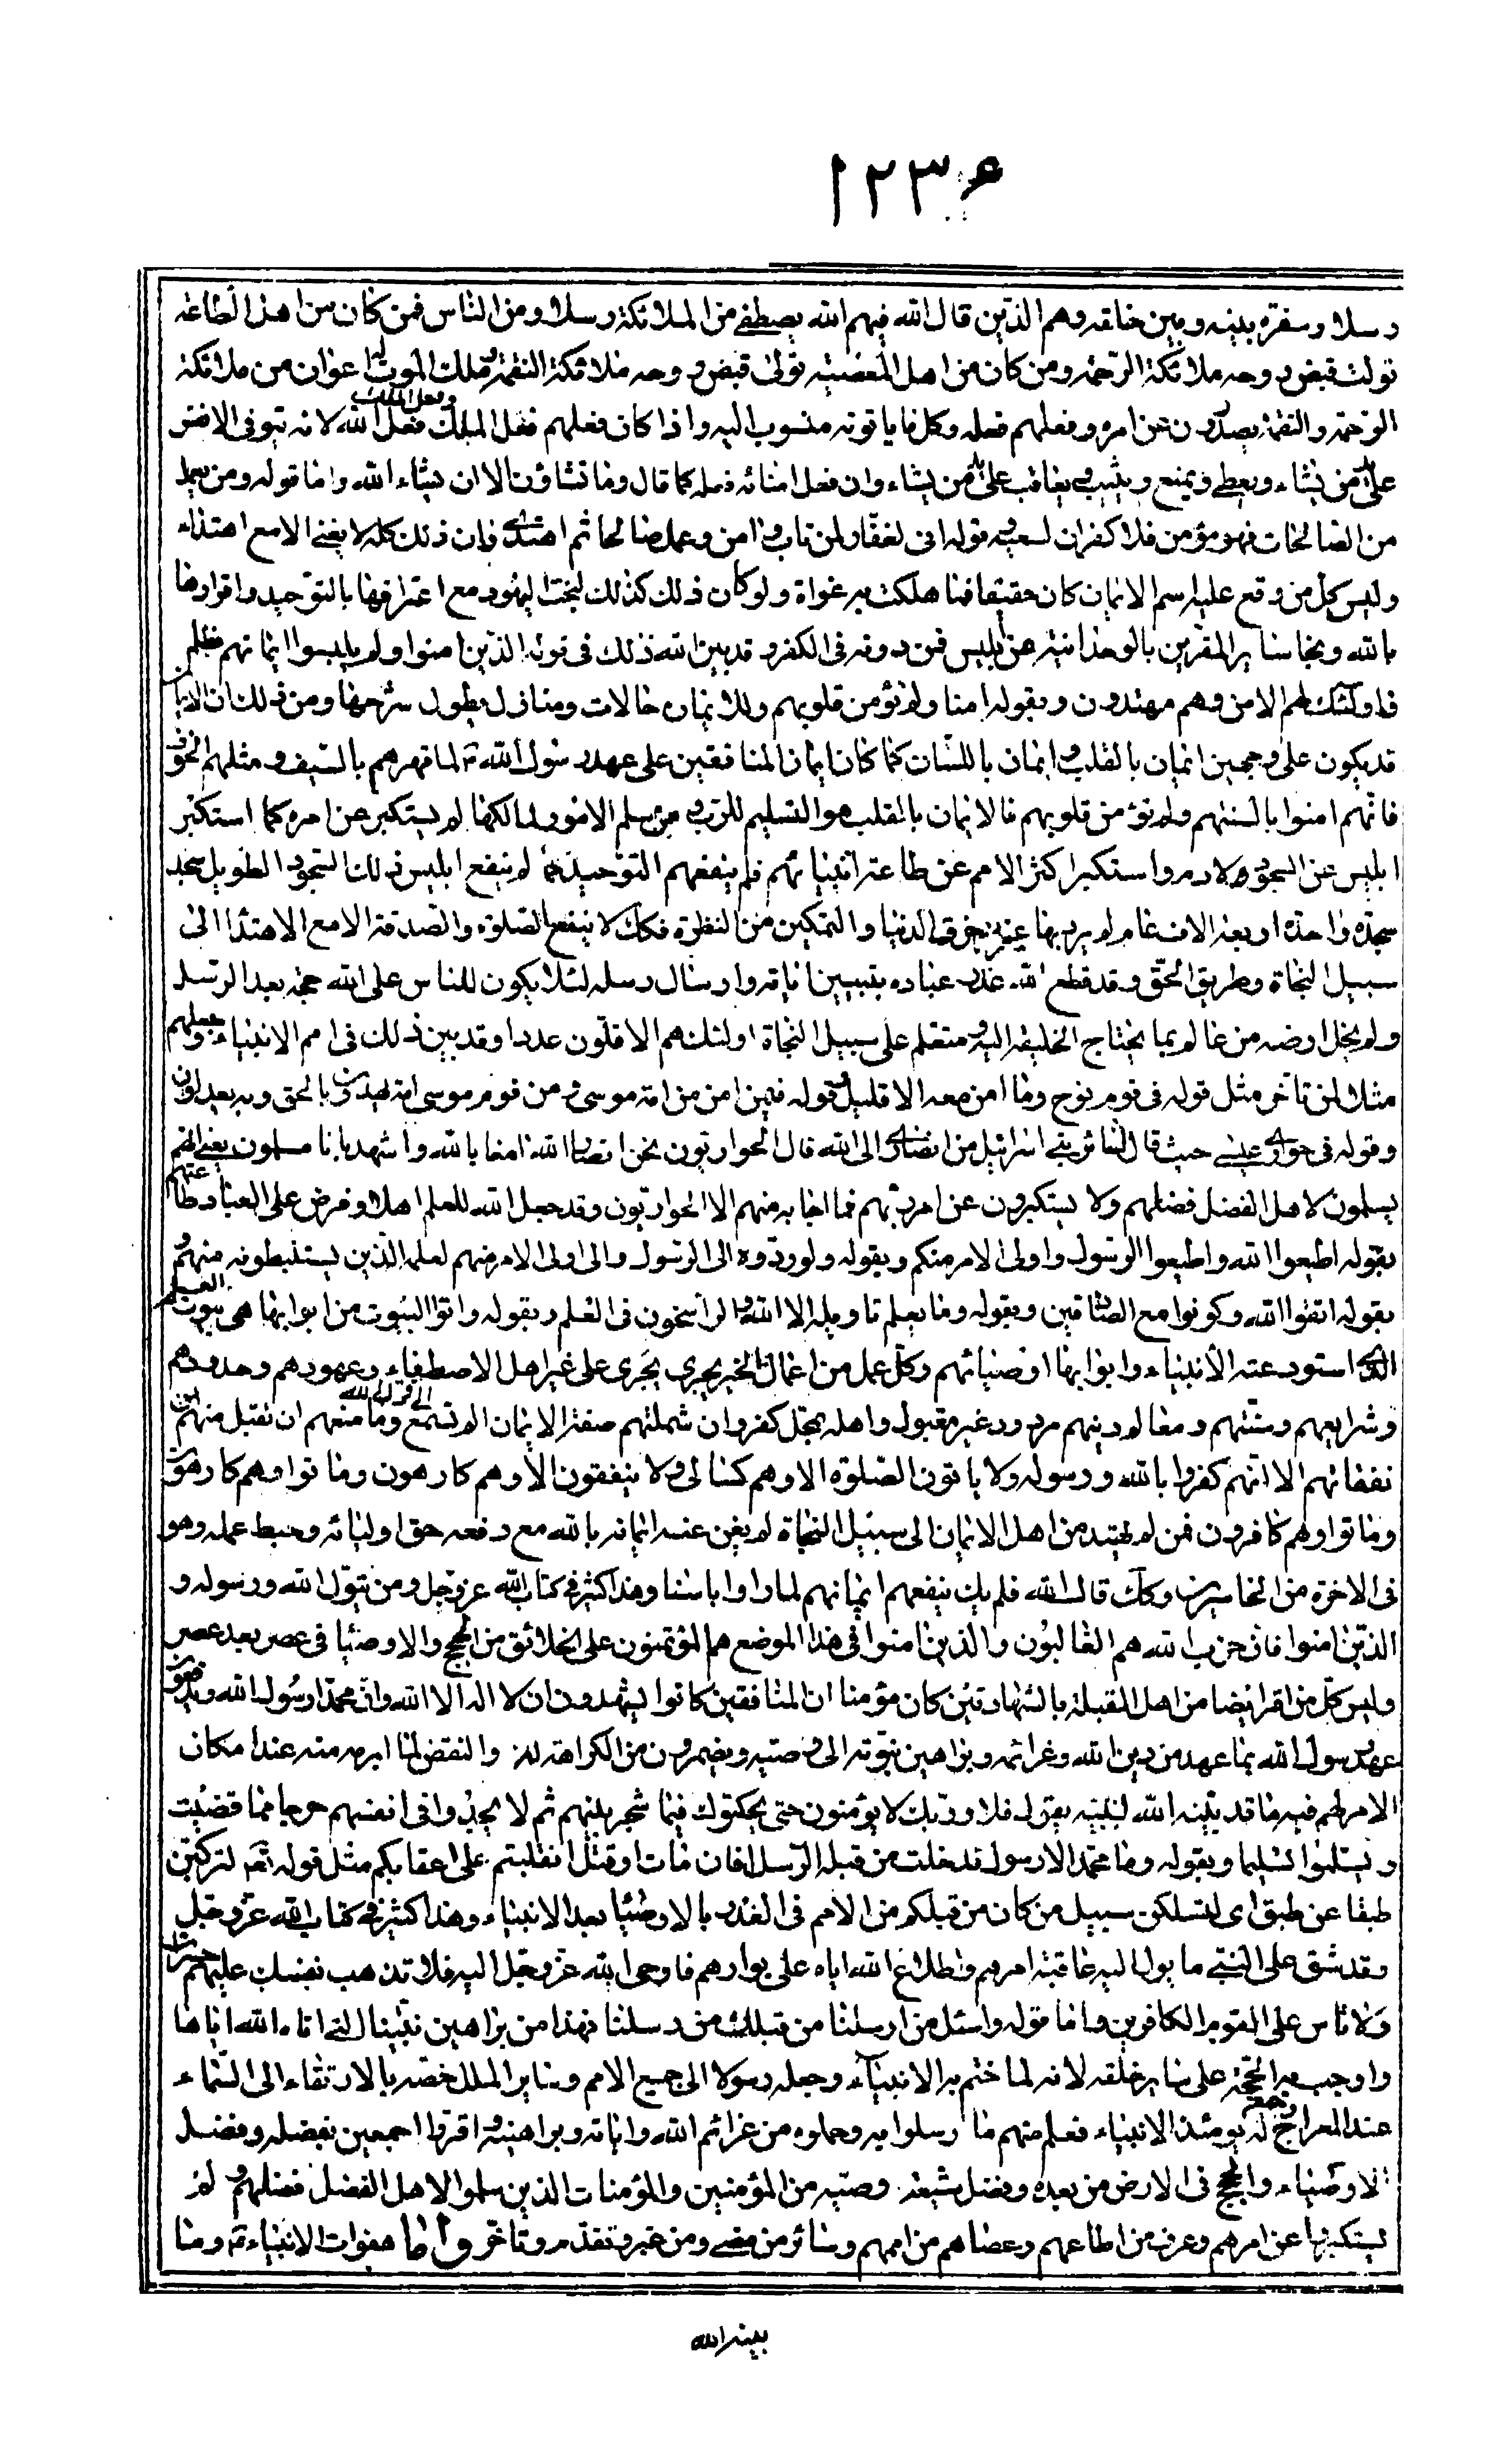 ١٢٣۶
رسلا و سفرة بينه و بين خلقه و هم الذين قال الله فيهم الله يصطفى من الملائكة رسلا و من الناس فمن كان من اهل الطاعة
تولت قبض روحه ملائكة الرحمة و من كان من اهل المعصية تولى قبض روحه ملائكة النقمة و لملك الموت اعوان من ملائكة
الرحمة و النقمة يصدرون عن امره و فعلهم فعله و كل ما ياتونه منسوب اليه و اذا كان فعلهم فعل ملك الموت و فعل ملك الموت فعل الله لانه يتوفى الانفس
على يد من يشاء و يعطى و يمنع و يثيب و يعاقب على يد من يشاء و ان فعل امنائه فعله كما قال و ما تشاؤن الا ان يشاء الله و اما قوله و من يعمل
من الصالحات فهو مؤمن فلا كفران لسعيه و قوله انى لغفار لمن تاب و امن و عمل صالحا ثم اهتدى فان ذلك كله لا يغنى الا مع اهتداء
و ليس كل من وقع عليه اسم الايمان كان حقيقا مما هلكت به غواة و لو كان ذلك كذلك لنجت اليهود مع اعترافها بالتوحيد و اقرارها
بالله و نجا سائر المقرين بالوحدانية من ابليس فمن دونه فى الكفر و قد بين الله ذلك فى قوله الذين امنوا و لم يلبسوا ايمانهم بظلم
فاولئك لهم الامن و هم مهتدون و بقوله امنا و لم تؤمن قلوبهم و للايمان حالات و منازل يطول شرحها و من ذلك ان الايمان
قد يكون على وجهين ايمان بالقلب و ايمان باللسان كما كان ايمان المنافقين على عهد رسول الله ص لما قهرهم بالسيف و شملهم الخوف
فانهم امنوا بالسنتهم و لم تؤمن قلوبهم فالايمان بالقلب هو التسليم للرب و من سلم الامور لمالكها لم يستكبر عن امره كما استكبر
ابليس عن السجود لادم و استكبر اكثر الامم عن طاعة انبيائهم فلم ينفعهم التوحيد كما لم ينفع ابليس ذلك السجود الطويل سجد
سجدة واحدة اربعة الاف عام لم يرد بها غير زخرف الدنيا و التمكين من النظرة فكك لا تنفع الصلوة و الصدقة الا مع الاهتداء الى
سبيل النجاة و طريق الحق و قد قطع الله عذر عباده بتبيين اياته و ارسال رسله لئلا يكون للناس على الله حجة بعد الرسل
و لم يخل ارضه من عالم بما يحتاج الخليقة اليه و متعلم على سبيل النجاة اولئك هم الاقلون عددا و قد بين ذلك فى امم الانبياء و جعلهم
مثلا لمن تاخر مثل قوله فى قوم نوح و ما امن معه الا قليل و قوله فيمن امن من امة موسى و من قوم موسى امة يهدون بالحق و به يعدلون
و قوله فى حوارى عيسى حيث قال لسائر بنى اسرائيل من انصارى الى الله قال الحواريون نحن انصار الله امنا بالله و اشهد بانا مسلمون يعنى انهم
يسلمون لاهل الفضل فضلهم و لا يستكبرون عن امر ربهم فما اجابه منهم الا الحواريون و قد جعل الله للعلم اهلا و فرض على العباد طاعتهم
بقوله اطيعوا الله و اطيعوا الرسول و اولى الامر منكم و بقوله و لو ردوه الى الرسول و الى اولى الامر منهم لعلمه الذين يستنبطونه منهم و
بقوله اتقوا الله و كونوا مع الصادقين و بقوله و ما يعلم تاويله الا الله و الراسخون فى العلم و بقوله و اتوا البيوت من ابوابها هى بيوت العلم
الذى استودعته الانبياء و ابوابها اوصيائهم و كل عمل من اعمال الخير يجرى على غير اهل الاصطفاء و عهودهم و حدودهم
و شرايعهم و سننهم و معالم دينهم مردود غير مقبول و اهله بمحل كفر و ان شملتهم صفة الايمان الم تسمع الى قول الله و ما منعهم ان تقبل منهم
نفقاتهم الا انهم كفروا بالله و رسوله و لا ياتون الصلوة الا و هم كسالى و لا ينفقون الا و هم كارهون و ماتوا و هم كارهون
و ماتوا و هم كافرون فمن لم يهتد من اهل الايمان الى سبيل النجاة لم يغن عنه ايمانه بالله مع دفعه حق اوليائه و حبط عمله و هو
فى الاخرة من الخاسرين و كك قال الله فلم يك ينفعهم ايمانهم لما راوا باسنا و هذا كثير فى كتاب الله عز و جل و من يتول الله و رسوله و
الذين امنوا فان حزب الله هم الغالبون و الذين امنوا فى هذا الموضع هم المؤتمنون على الخلائق من الحجج و الاوصيا فى عصر بعد عصر
و ليس كل من اقر ايضا من اهل القبلة بالشهادتين كان مؤمنا ان المنافقين كانوا يشهدون ان لا اله الا الله و ان محمدا رسول الله و يدفعون
عهد رسول الله بما عهد من دين الله و عزائمه و براهين نبوته الى وصيه و يضمرون من الكراهة له و النقض لما ابرمه منه عند امكان
الامر لهم فيه ما قد بينه الله لنبيه بقوله فلا و ربك لا يؤمنون حتى يحكموك فيما شجر بينهم ثم لا يجدوا فى انفسهم حرجا مما قضيت
و يسلموا تسليما و بقوله و ما محمد الا رسول قد خلت من قبله الرسل افان مات او قتل انقلبتم على اعقابكم مثل قوله لتركبن
طبقا عن طبق اى لتسلكن سبيل من كان من قبلكم من الامم فى الغدر بالاوصيا بعد الانبياء و هذا كثير فى كتاب الله عز و جل
و قد شق على النبى ما يؤل اليه عاقبة امرهم و اطلاع الله اياه على بوارهم فاوحى الله عز و جل اليه فلا تذهب نفسك عليهم حسرات
و لا تاس على القوم الكافرين و اما قوله و اسئل من ارسلنا من قبلك من رسلنا فهذا من براهين نبينا التى اتاه الله اياها
و اوجب به الحجة على سائر خلقه لانه لما ختم به الانبياء و جعله رسولا الى جميع الامم و سائر الملل خصه بالارتقاء الى السماء
عند المعراج و جمع له يومئذ الانبياء فعلم منهم ما ارسلوا به و حملوه من عزائم الله و اياته و براهينه و اقروا اجمعين بفضله و فضل
الاوصياء و الحجج فى الارض من بعده و فضل شيعة وصيه من المؤمنين و المؤمنات الذين سلموا لاهل الفضل فضلهم و لم
يستكبروا عن امرهم و عرف من اطاعهم و عصاهم من اممهم و سائر من مضى و من غبر و تقدم و تاخر و اما هفوات الانبياء و ما
بينه الله